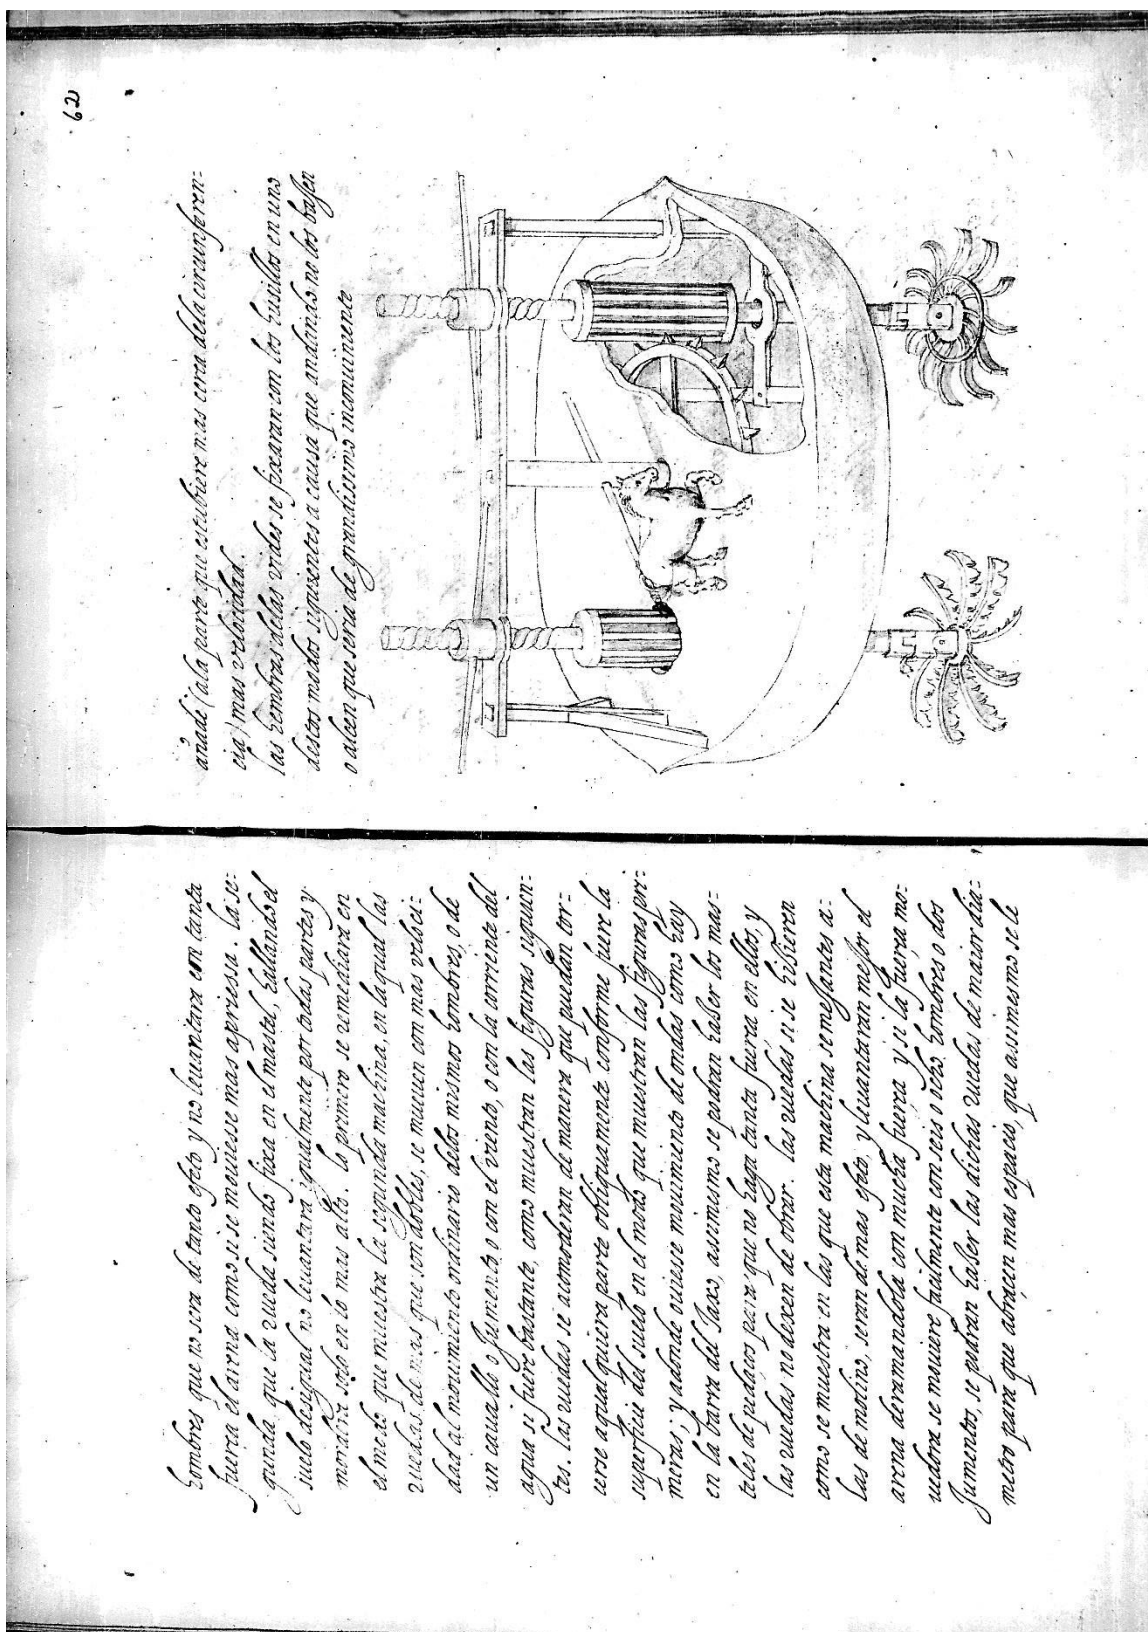 hombres que no sera de tanto efeto y no leuantara con tanta
fuerça el arena como si se mouiesse mas apriessa. la se=
gunda que la rueda siendo fixa en el mastel, hallando el
suelo desigual no leuantara igualmente por todas partes y
mordera solo en lo mas alto. lo primero se remediara en
el modo que muestra la segunda machina, en la qual las
ruedas de mas que son dobles, se mueuen con mas veloci=
dad al mouimiento ordinario delos mismos hombres, o de
un cauallo o Jumento, o con el viento, o con la corriente del
agua si fuere bastante, como muestran las figuras siguien=
tes. las ruedas se acomodaran de manera que puedan tor=
cerse a qualquiera parte obliquamente conforme fuere la
superficie del suelo en el modo que muestran las figuras pri=
meras; y adonde ouiese mouimiento de ondas como hay
en la barra del Taxo, assimismo se podran haser los mas=
teles de pedaços para que no haga tanta fuerça en ellos, y
las ruedas no dexen de obrar. las ruedas si se hisieren
como se muestra en las que esta machina semejantes a=
las de molino, seran de mas efeto, y leuantaran mejor el
arena derramandola con mucha fuerça y si la fuerça mo=
uedora se mouiere facilmente con seis o ocho hombres o dos
Jumentos, se podran haser las dichas ruedas de maior dia=
metro para que abracen mas espacio, que assimesmo se le
62
añade (a la parte que estubiere mas cerca dela circunferen=
cia) mas velocidad.
las hembras delas vides se fixaran con los husillos en uno
destos modos siguientes a causa que andando no los baxen
o alcen que seria de grandissimo inconuiniente